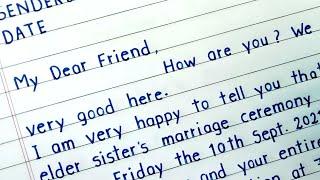 SENDER
DATE
My Dear Friend,
How are you? We
very good here.
I am very happy to tell you that
elder sister's marriage ceremony
Friday the 10th Sept. 202
and your entire
at